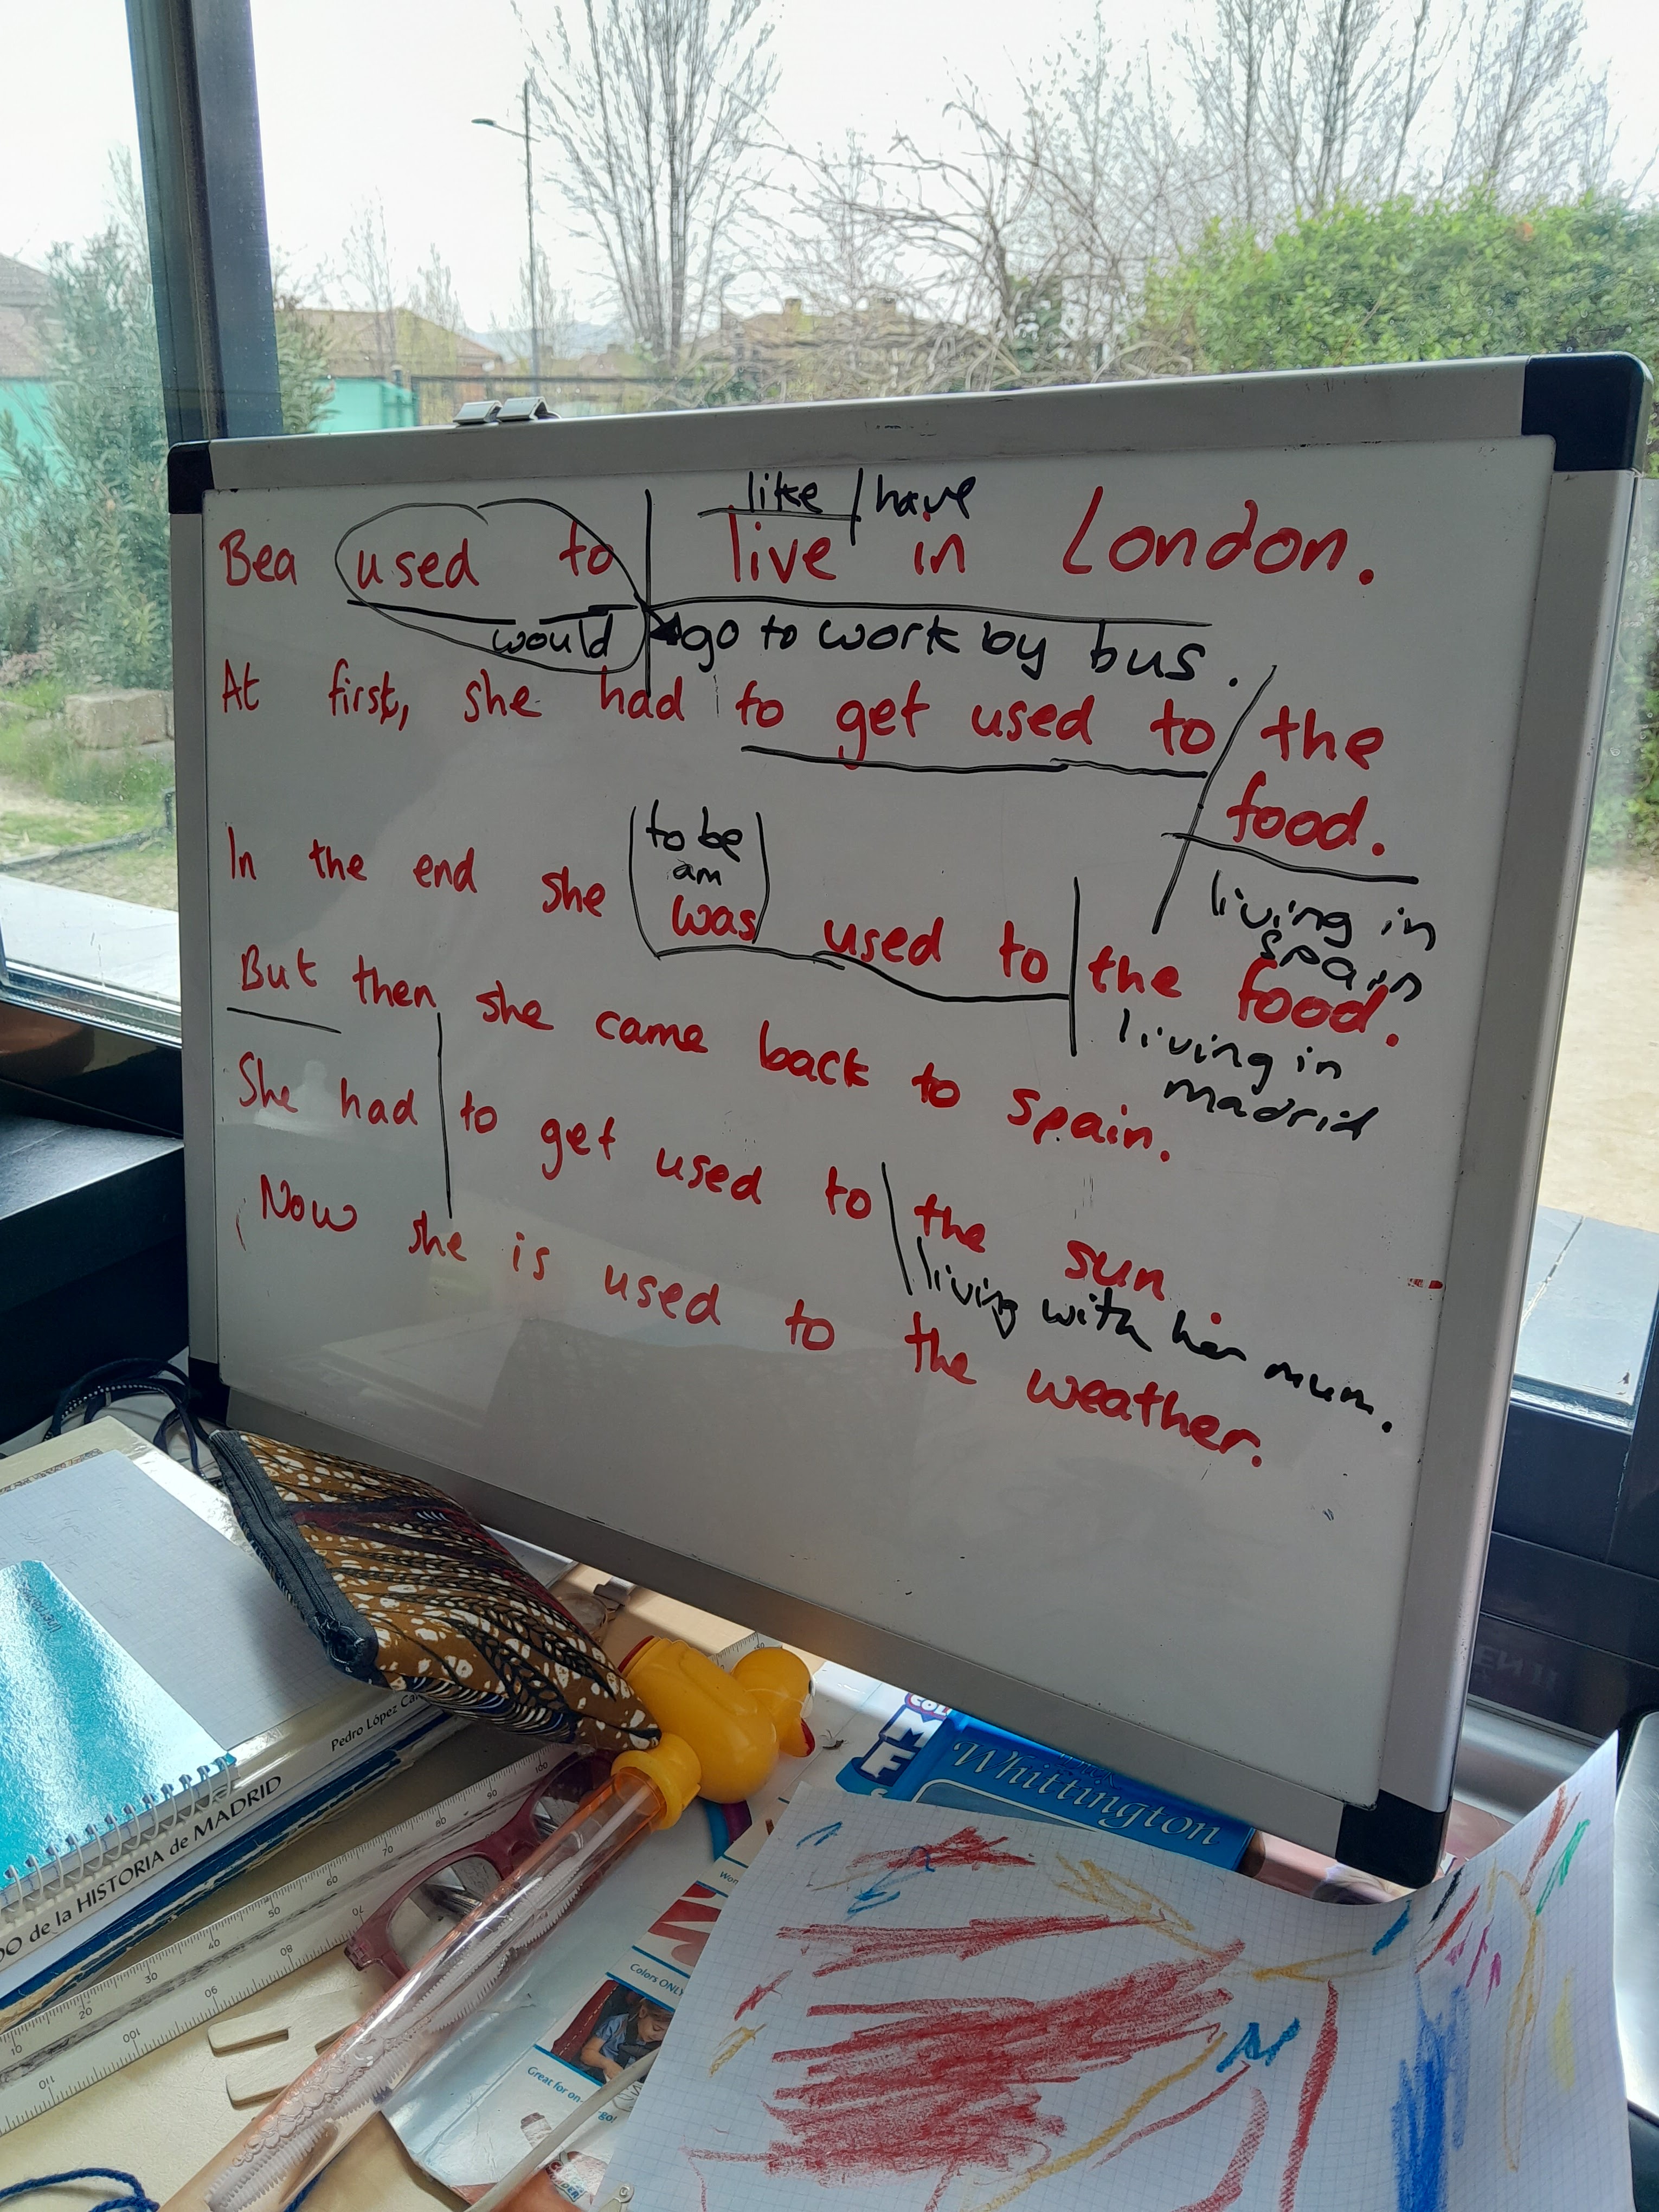 like / have
Bea used to live in London.
would go to work by bus.
At first, she had to get used to the
food.
to be
am
living in
spain
In the end she was used to the food.
living in
madrid
But then she came back to spain.
She had to get used to the sun.
living with her mum.
Now she is used to the weather.
Pedro López Ca
DO de la HISTORIA de MADRID
Whittington
Colors ONLY
Great for on-
go!